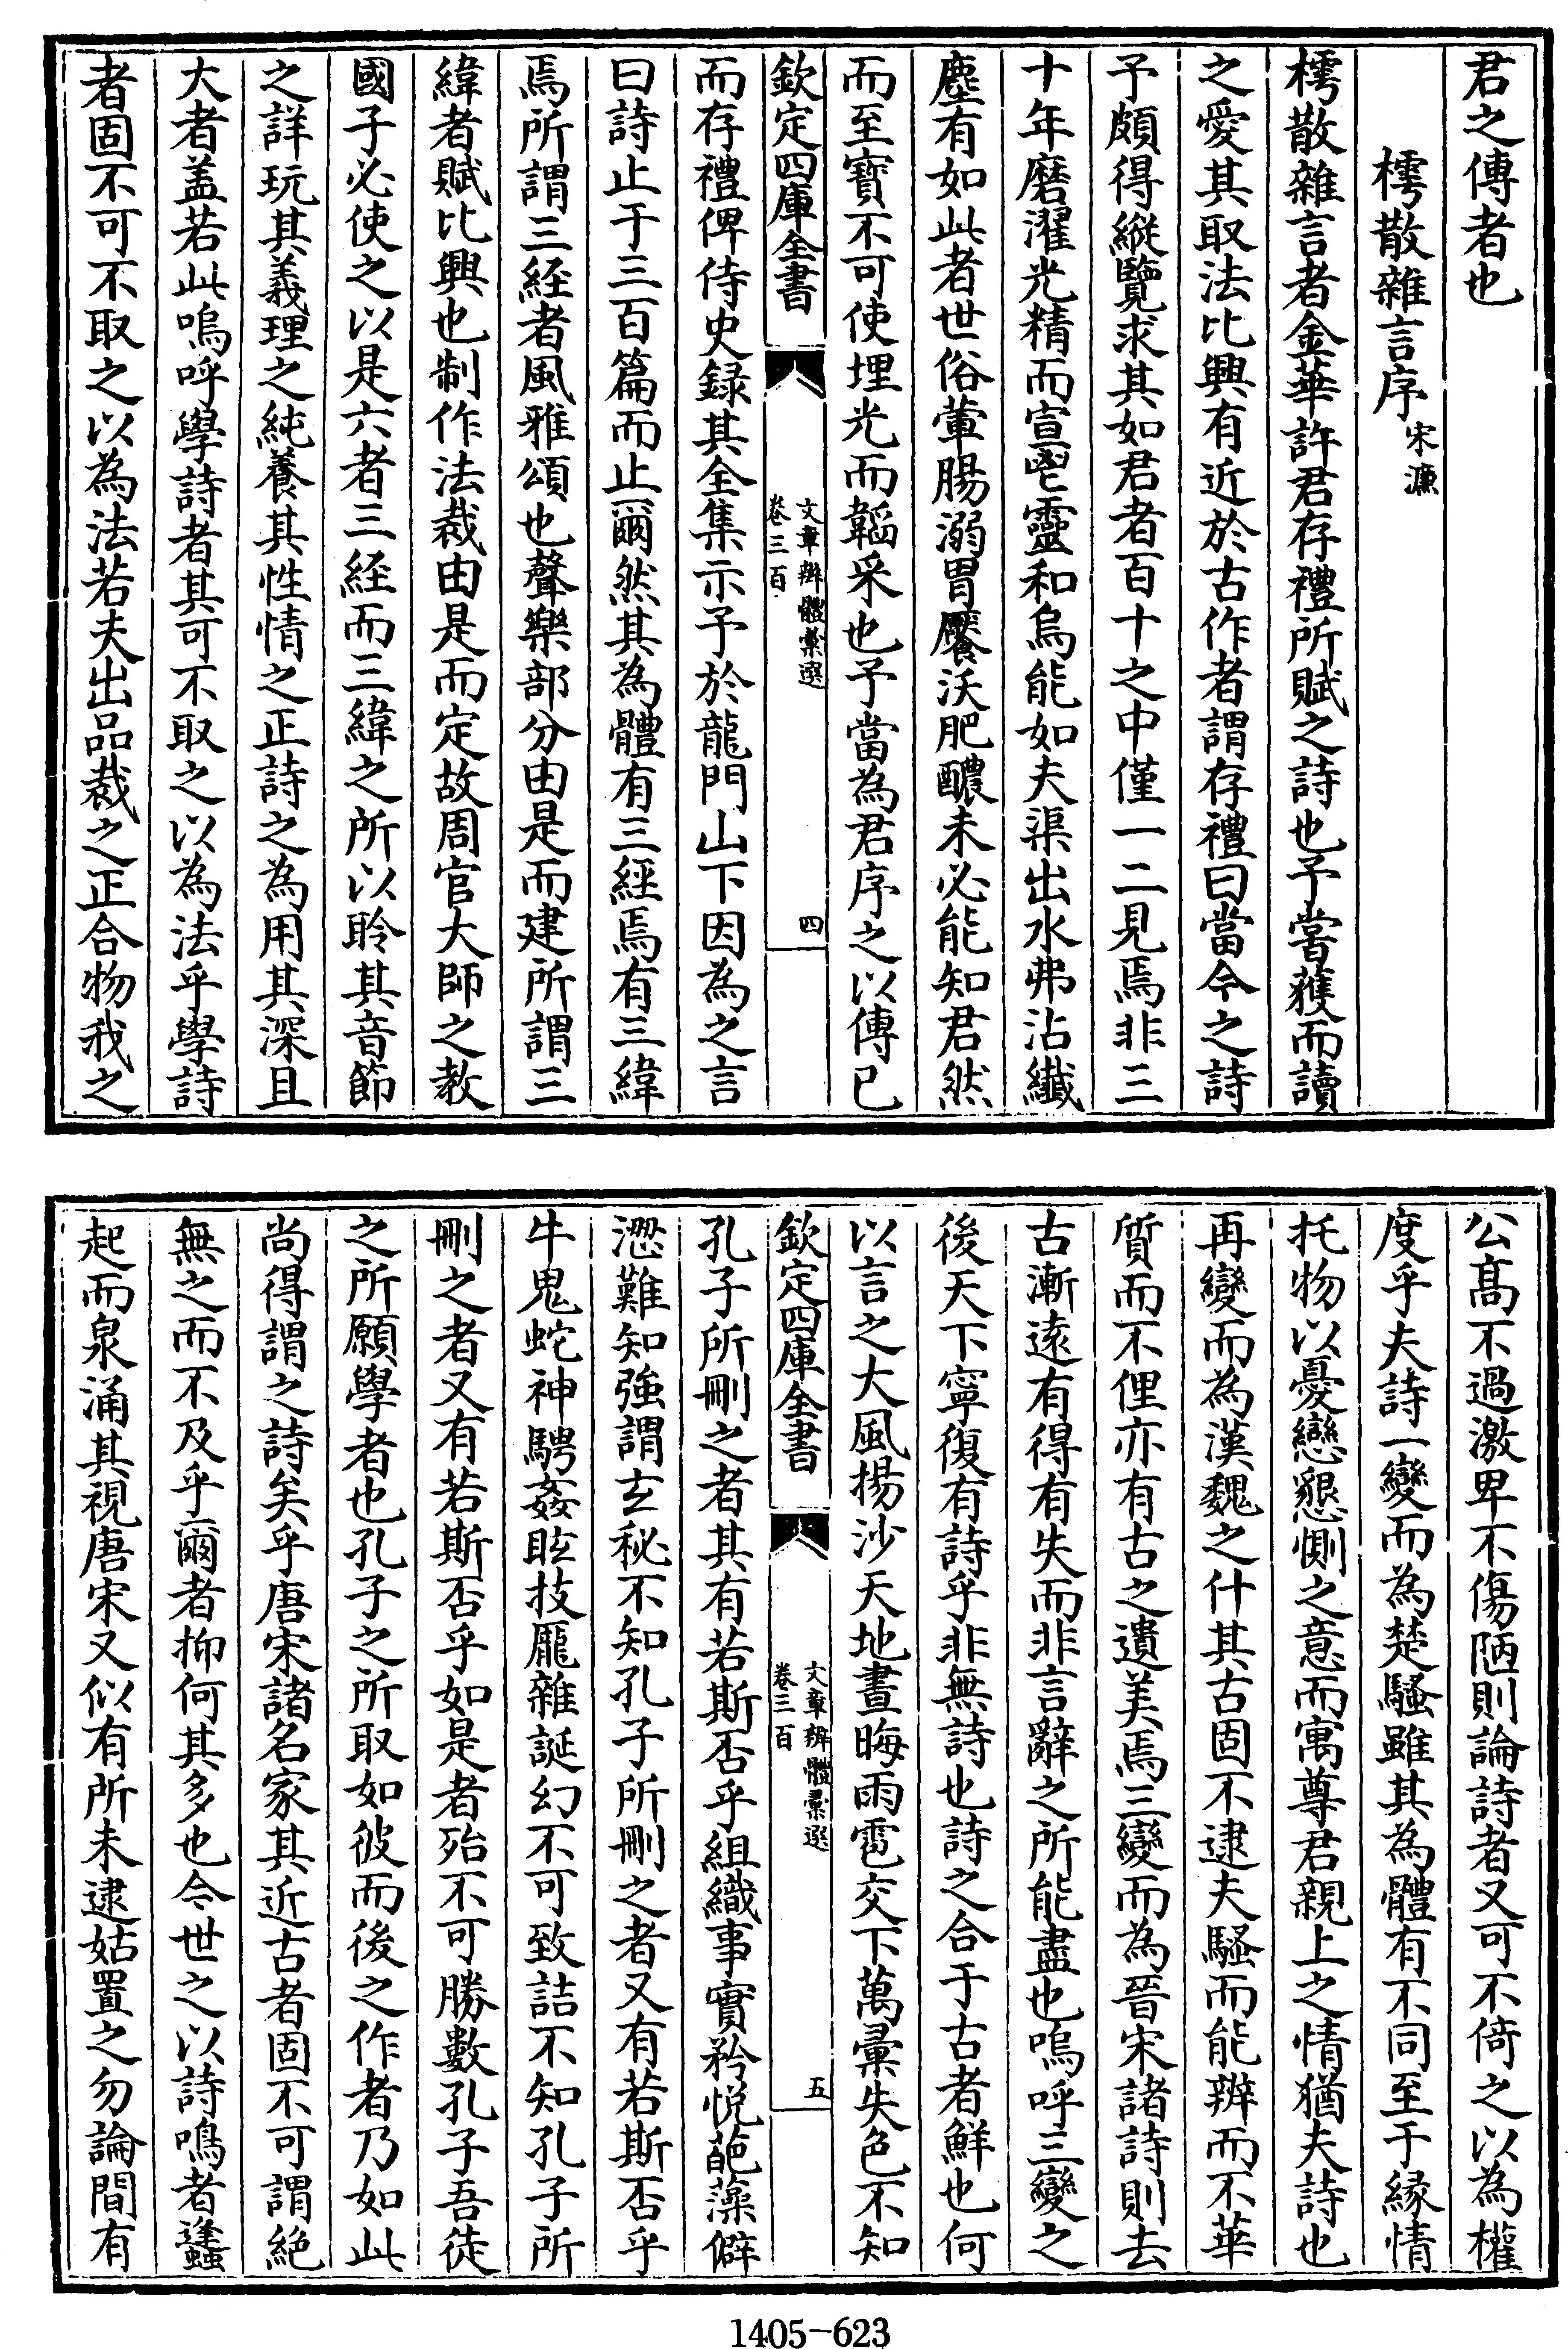 君之傳者也
樗散雜言序 宋濂
樗散雜言者金華許君存禮所賦之詩也予嘗獲而讀
之愛其取法比興有近於古作者謂存禮曰當今之詩
予頗得縱覽求其如君者百十之中僅一二見焉非三
十年磨濯光精而宣鬯靈和烏能如夫渠出水弗沾纖
塵有如此者世俗葷腸溺胃饜沃肥醲未必能知君然
而至寳不可使埋光而韜采也予當為君序之以傳已
欽定四庫全書
文章辨體彙選
卷三百
四
而存禮俾侍史録其全集示予於龍門山下因為之言
曰詩止于三百篇而止爾然其為體有三經焉有三緯
焉所謂三經者風雅頌也聲樂部分由是而建所謂三
緯者賦比興也制作法裁由是而定故周官大師之教
國子必使之以是六者三經而三緯之所以聆其音節
之詳玩其義理之純養其性情之正詩之為用其深且
大者盖若此嗚呼學詩者其可不取之以為法乎學詩
者固不可不取之以為法若夫出品裁之正合物我之
公髙不過激卑不傷陋則論詩者又可不倚之以為權
度乎夫詩一變而為楚騷雖其為體有不同至于縁情
托物以憂戀懇惻之意而寓尊君親上之情猶夫詩也
再變而為漢魏之什其古固不逮夫騷而能辨而不華
質而不俚亦有古之遺美焉三變而為晉宋諸詩則去
古漸逺有得有失而非言辭之所能盡也嗚呼三變之
後天下寜復有詩乎非無詩也詩之合于古者鮮也何
以言之大風揚沙天地晝晦雨雹交下萬彙失色不知
欽定四庫全書
文章辨體彙選
卷三百
五
孔子所刪之者其有若斯否乎組織事實矜悦葩藻僻
澀難知強謂玄秘不知孔子所刪之者又有若斯否乎
牛鬼蛇神騁姦眩技厖雜誕幻不可致詰不知孔子所
刪之者又有若斯否乎如是者殆不可勝數孔子吾徒
之所願學者也孔子之所取如彼而後之作者乃如此
尚得謂之詩矣乎唐宋諸名家其近古者固不可謂絶
無之而不及乎爾者抑何其多也今世之以詩鳴者蠭
起而泉涌其視唐宋又似有所未逮姑置之勿論間有
1405-623